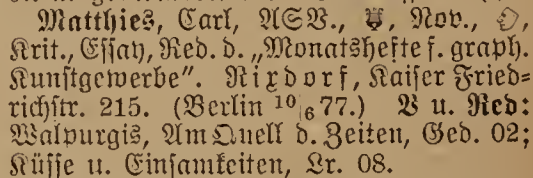 Matthies, Carl, ASV., Nov.,
Krit., Essay, Red. d. „Monatshefte f. graph.
Kunstgewerbe". Rixdorf, Kaiser Fried=
richstr. 215. (Berlin 10|6 77.) V u. Red:
Walpurgis, Am Quell d. Zeiten, Ged. 02;
Küsse u. Einsamkeiten, Lr. 08.